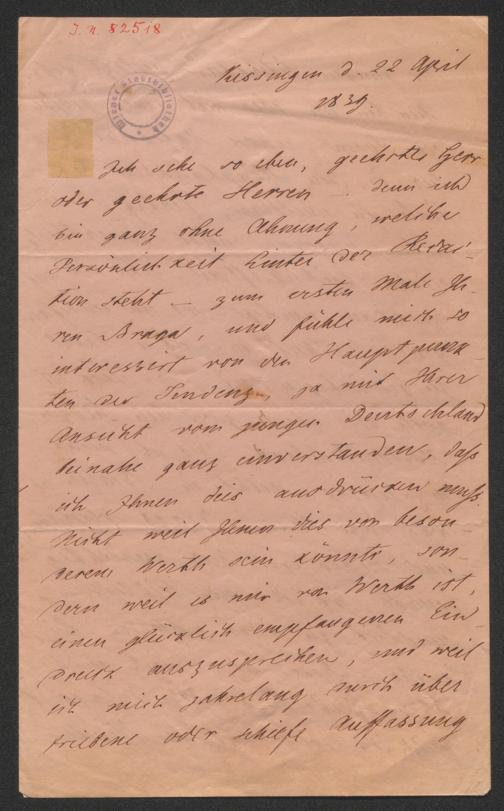 I. N. 82518
Wiener Stadtbibliothek
Kissingen d. 22 April
1839.
Ich sehe so eben, geehrter Herr
oder geehrte Herren – denn ich
bin ganz ohne Ahnung, welche
Persönlichkeit hinter der Redac-
tion steht – zum ersten Male Ih-
ren Braga, und fühle mich so
interessirt von den Hauptpunk-
ten der Tendenz, ja mit Ihrer
Ansicht vom jungen Deutschland
beinahe ganz einverstanden, daß
ich Ihnen dies ausdrücken muß.
Nicht weil Ihnen dies von beson
derem Werth sein könnte, son-
dern weil es mir von Werth ist,
einen glücklich empfangenen Ein-
druck auszusprechen, und weil
ich mich jahrelang durch über
triebene oder schiefe Auffassung